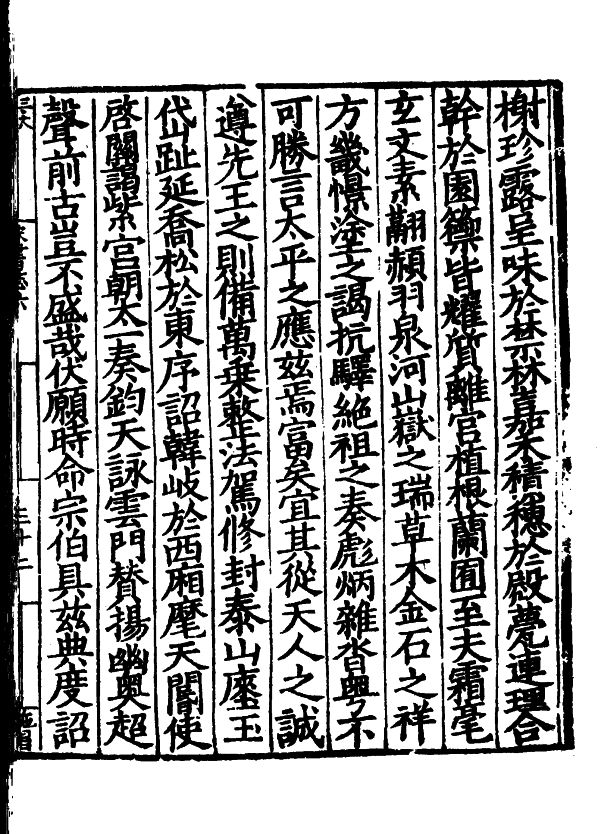 榭珍露呈味於禁林嘉禾積穗於殿甍連理合
幹於園籞皆耀質離宮植根蘭囿至夫霜毫
玄文素翮赬羽泉河山嶽之瑞草木金石之祥
方畿憬塗之謁抗驛絕祖之奏彪炳雜沓粵不
可勝言太平之應茲焉富矣宜其從天人之誠
遵先王之則備萬乗整法駕修封泰山瘞玉
岱趾延喬松於東序詔韓岐於西廂麾天閽使
啓關謁紫宮朝太一奏鈞天詠雲門賛揚幽奧超
聲前古豈不盛哉伏願時命宗伯具茲典度詔